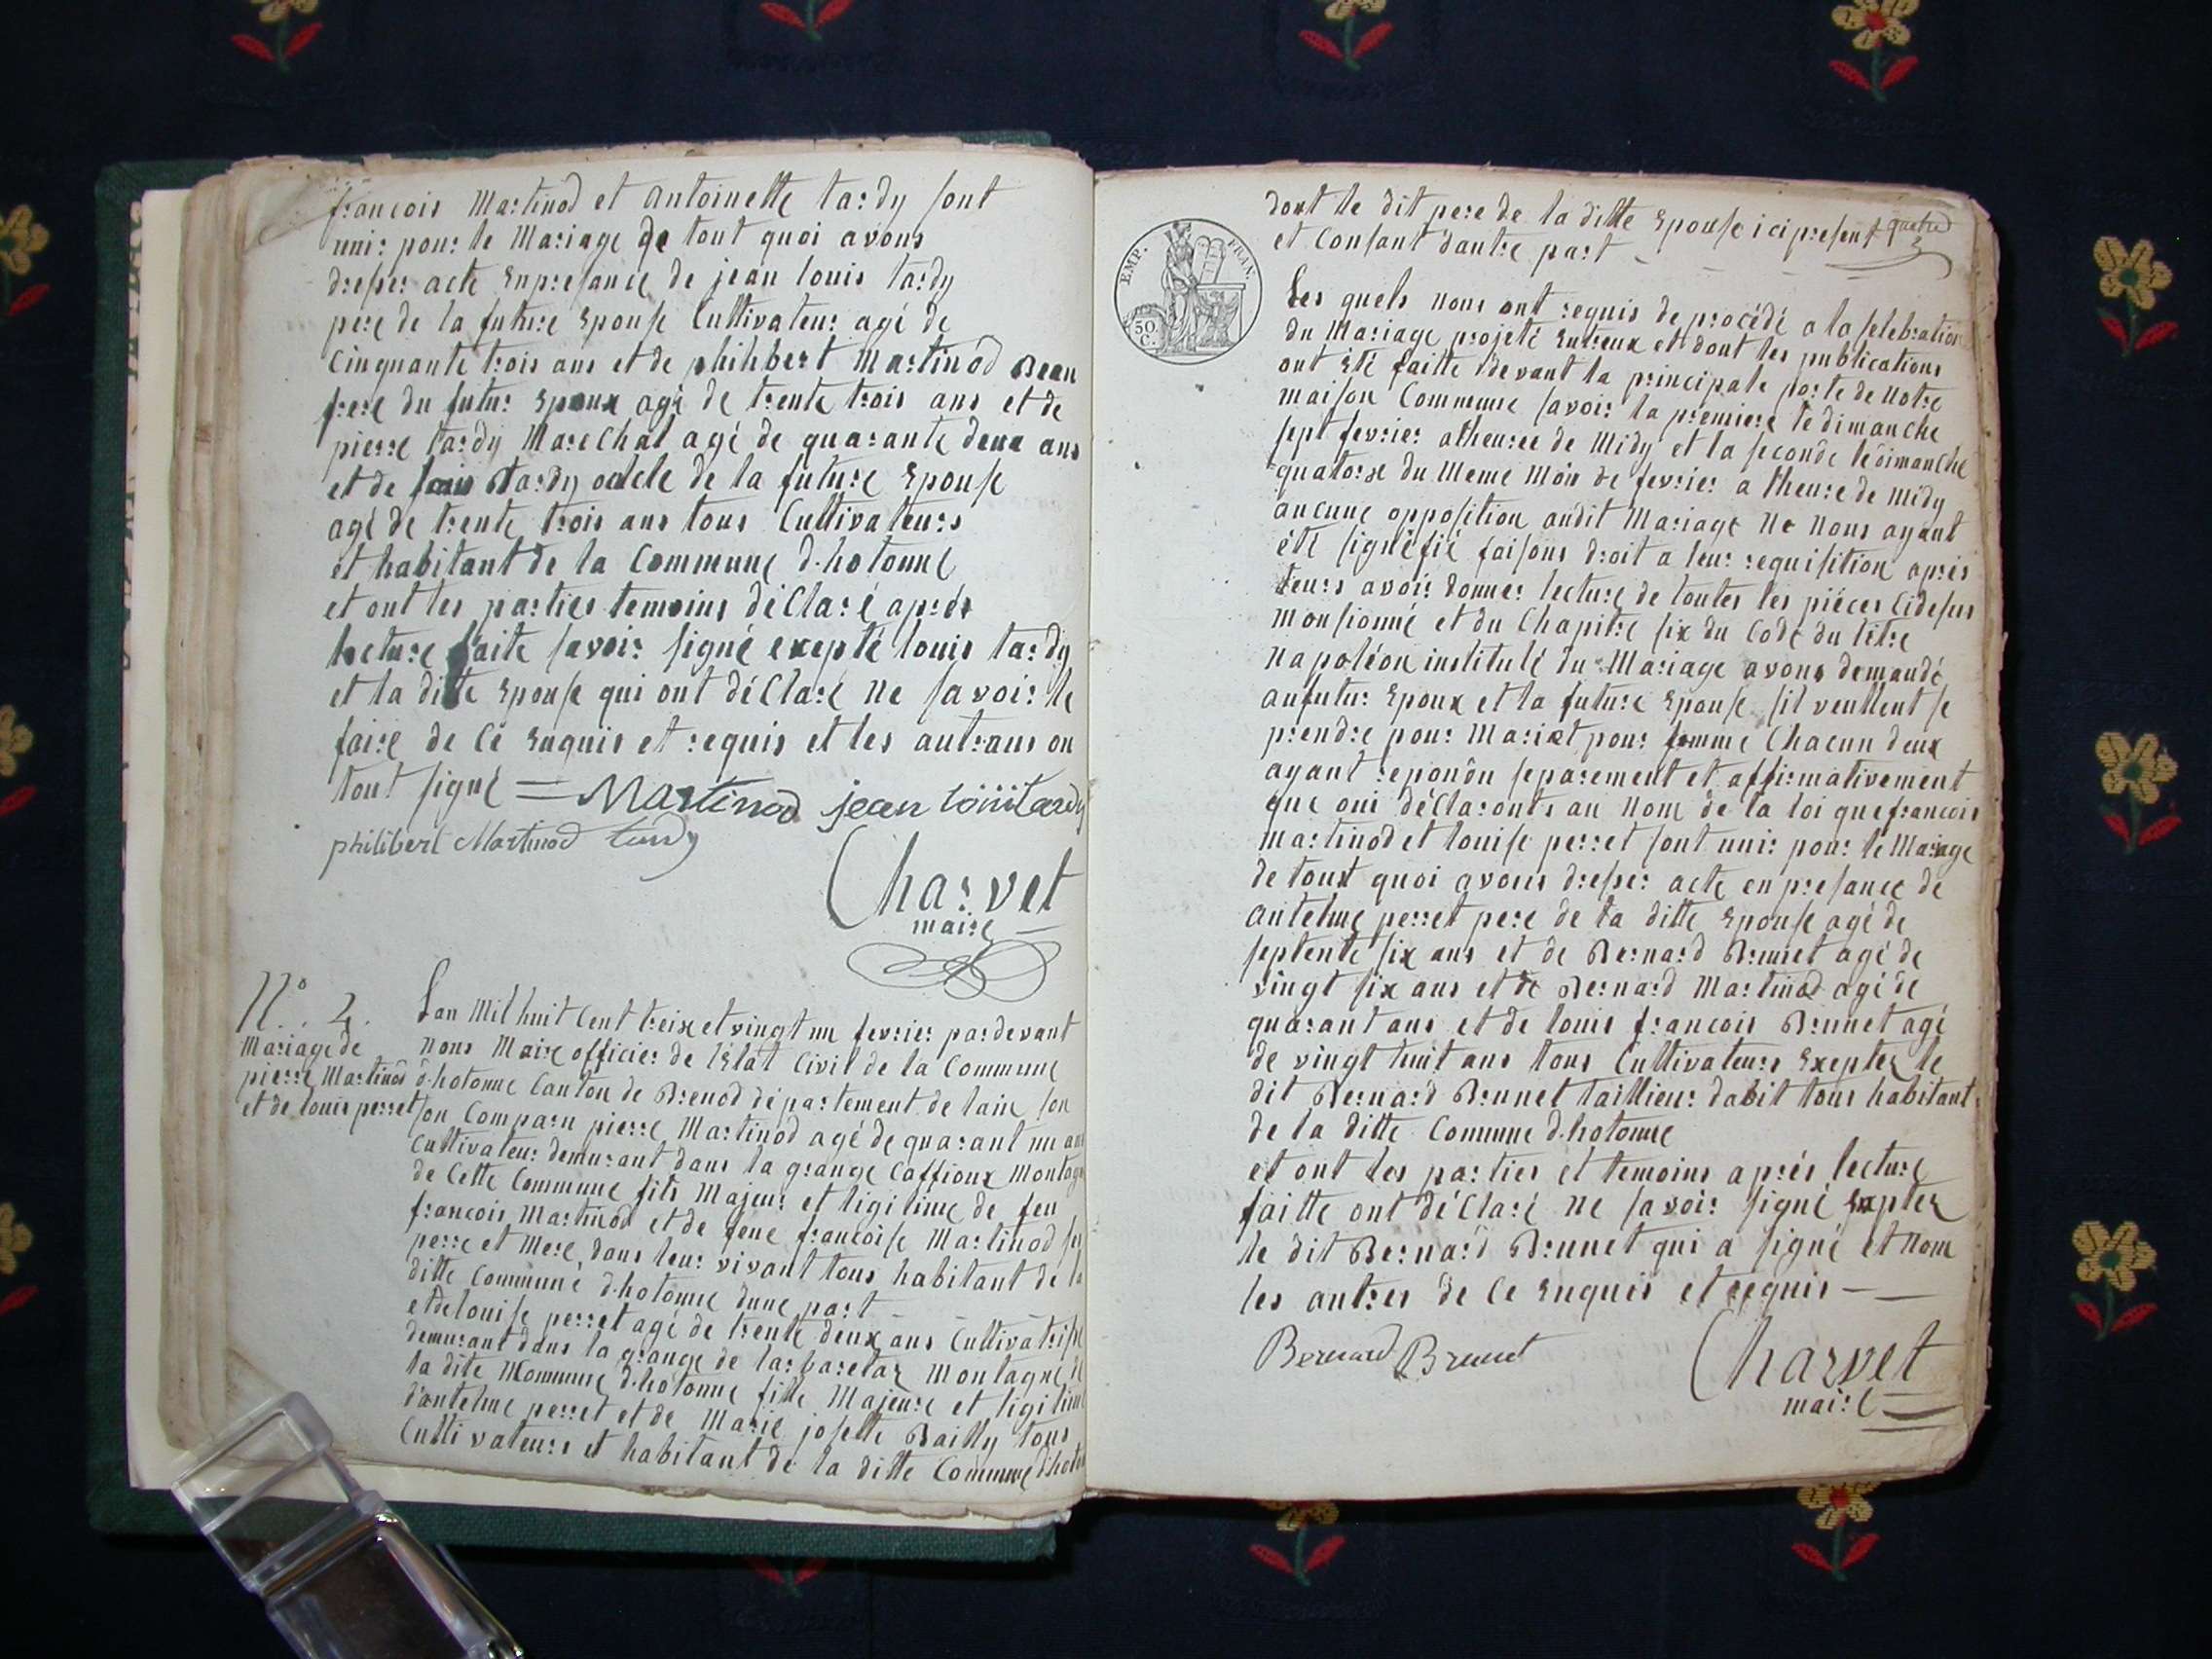 françois Martinod et antoinette tardy sont
unir pour le Mariage de tout quoi avons
dresser acte Enpresance de jean louis tardy
pere de la future Epouse Cultivateur agé de
Cinquante trois ans et de philibert Martinod Beau
frere du futur Epoux agé de trente trois ans et de
pierre tardy MareChal agé de quarante deux ans
et de tardy oncle de la future Epouse
agé de trente trois ans tous Cultivateurs
et habitant de la Commune d.hotonne
et ont les parties temoins déClaré aprés
lecture faite savoir signé exepté louis tardy
et la ditte Epouse qui ont déClaré ne savoir le
faire de Ce Enquis et requis et les autrans on
tout signé = Martinod jean louis tardy
philibert Martinod tardy
Charvet
maire
N.° 4.
Mariage de
pierre Martinod
et de louis perret
Lan Mil huit Cent treix et vingt un fevrier par devant
nous Maire officier de l'Etat Civil de la Commune
d.hotonne Canton de Brenod département de lain son
son Comparu pierre Martinod agé de quarant un ans
Cultivateur demurant dans la grange Caffioux Montagn
de Cette Commune fils Majeur et ligitime de feu
françois Martinod et de feue francoise Martinod
perre et Mere dans leur vivant tous habitant de la
ditte Commune d.hotonne dune part
et de louise perret agé de trente deux ans Cultivatrise
demurant dans la grange de larbaretaz Montagne de
la dite Mommune d.hotonne fille Majeure et ligitime
d'antelme perret et de Marie josette Bailly tous
Cultivateurs et habitant de la ditte Commune d'hoto
quatre
dont le dit pere de la ditte Epouse ici present
et Consant dautre part
EMP. FRAN.
50
C.
Les quels nous ont requis de procédé a la selebration
du Mariage projeté Entreux et dont les publications
ont été faitte devant la principale porte de notre
maison Commune savoir la premiere le dimanche
sept fevrier a lheuree de Midy et la seconde le dimanche
quatorze du Meme Mois de fevrier a lheure de midy
aucune opposition audit Mariage Ne Nous ayant
été signéfié faisons droit a leur requisition aprés
leurs avoir donner lecture de toutes les piéces Cidesus
monsionné et du Chapitre six du Code du titre
napoléon institulé du Mariage avons demandé
aufutur Epoux et la future Epouse sil veullent se
prendre pour Mariet pour femme Chacun deux
ayant repondu separement et affirmativement
que oui déClaronts au Nom de la loi que francois
martinod et louise perret sont unir pour le Mariage
de toust quoi avons dresser acte en presance de
antelme perret pere de la ditte Epouse agé de
septente six ans et de Bernard Brunet agé de
vingt six ans et de Bernard Martinod agé de
quarant ans et de louis françois Brunet agé
de vingt huit ans tous Cultivateurs Exeptez le
dit Bernard Brunet taillieur dabit tous habitant
de la ditte Commune d.hotonne
et ont les parties et temoins aprés lecture
faitte ont déClaré ne savoir signé Exptez
le dit Bernard Brunet qui a signé et Nom
les autres de Ce Enquis et requis
Bernard Brunet
Charvet
maire